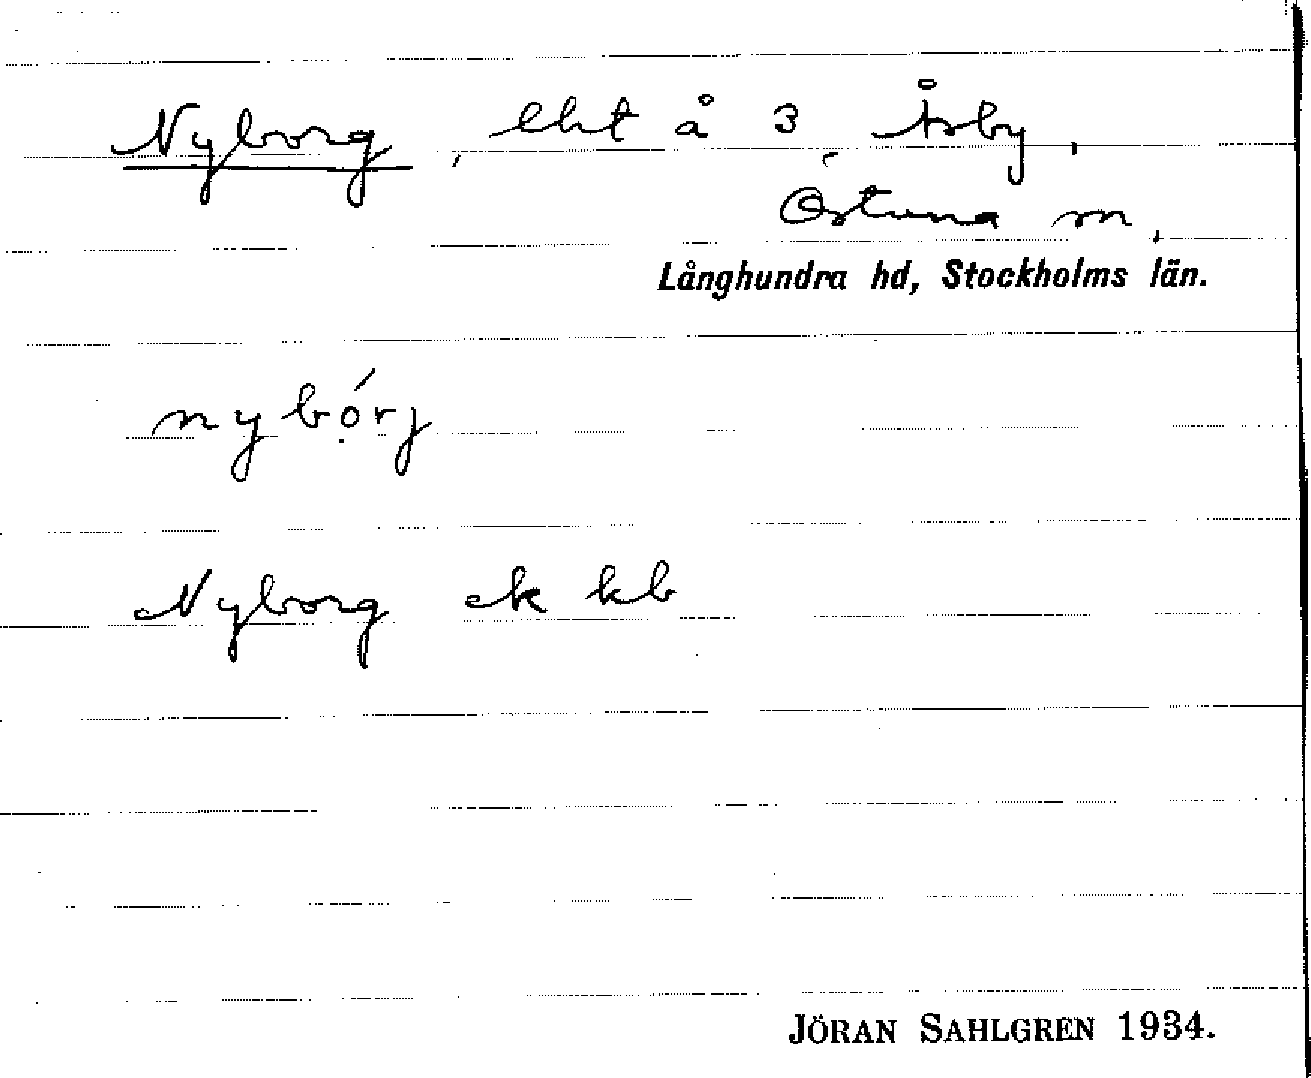 Nyborg, lht å 3 Åsby,
Östuna sn,
Långhundra hd, Stockholms län.
nybọ́rj
Nyborg ek kb
JÖRAN SAHLGREN 1934.